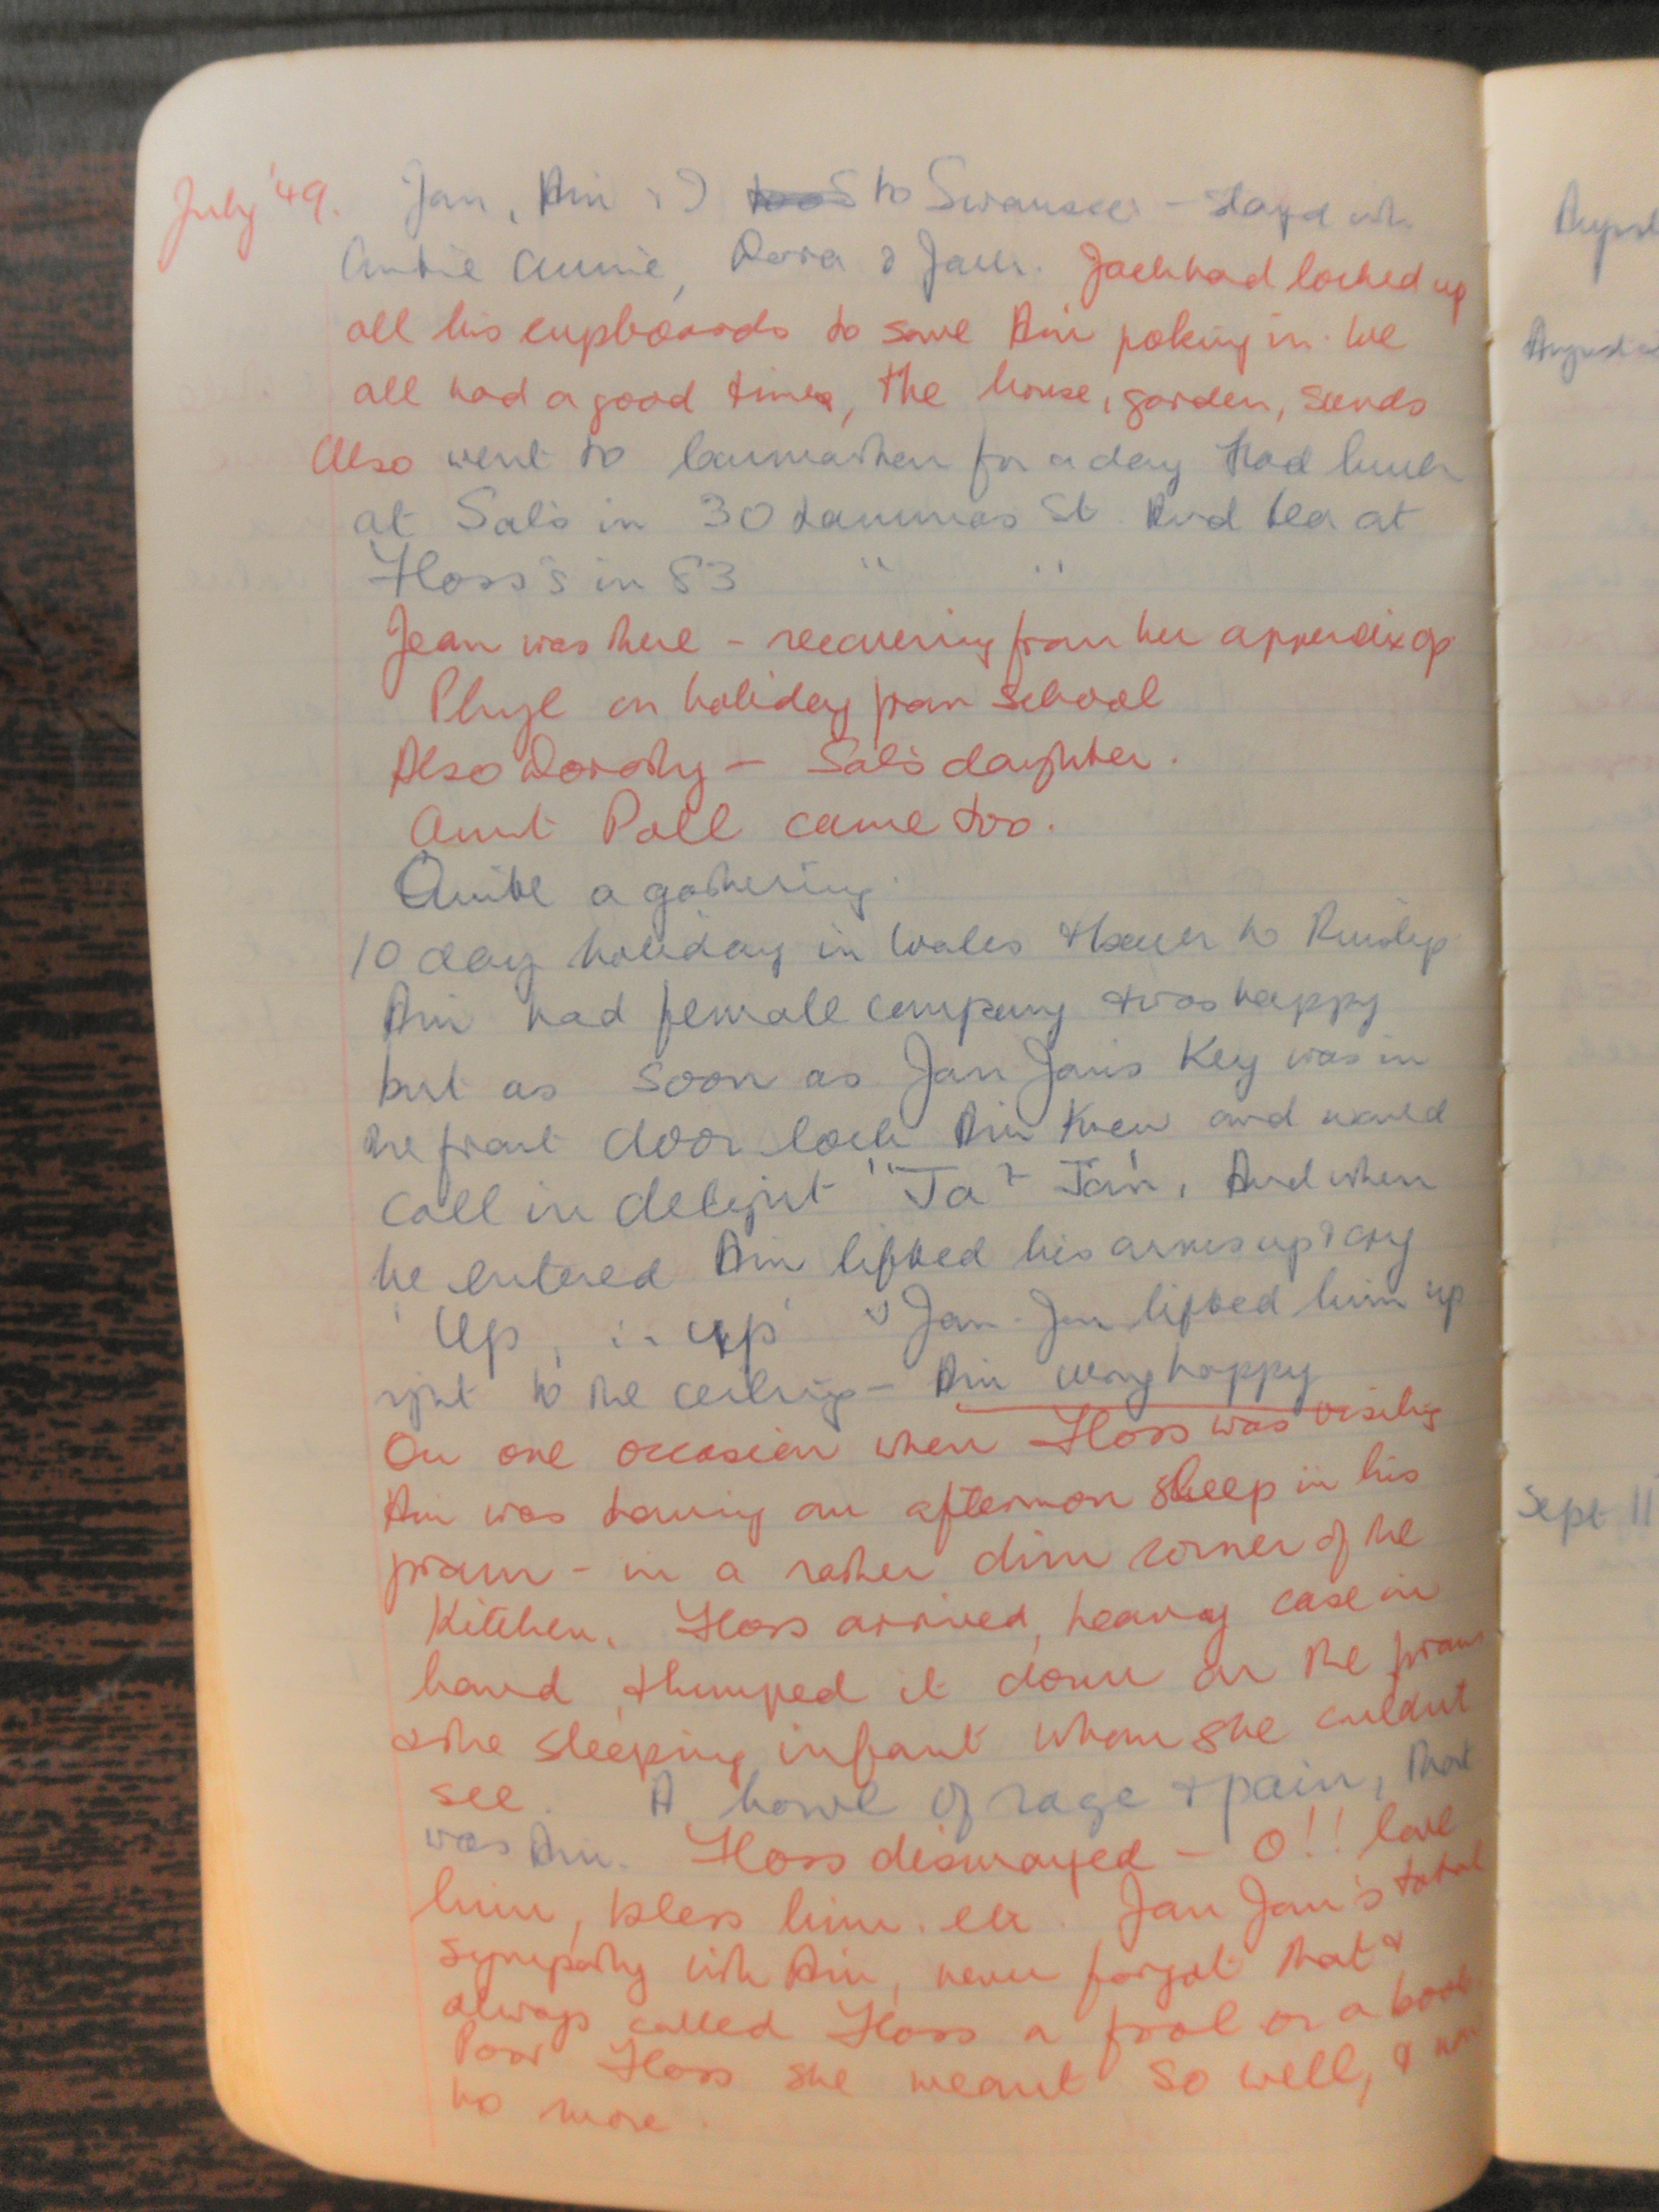 July '49. Jan, Ain & I to Swansea - stayed with
Auntie Annie, Dora & Jack. Jack had locked up
all his cupboards to save Ain poking in. We
all had a good time, the house, garden, sands
Also went to Carmarthen for a day & had lunch
at Sal's in 30 Lammas St. And tea at
Floss's in 83 " "
Jean was there - recovering from her appendix op
Phyl on holiday from school
Also Dorothy - Sal's daughter.
Aunt Poll came too.
Quite a gathering.
10 day holiday in Wales & back to Ruislip
Ain had female company & was happy
but as soon as Jan Jan's key was in
the front door lock Ain knew and would
call in delight "Ja - Jan, And when
he entered Ain lifted his arms up & cry
'Up, up' & Jan-Jan lifted him up
right to the ceiling - Ain very happy
On one occasion when Floss was visiting
Ain was having an afternoon sleep in his
pram - in a rather dim corner of the
Kitchen. Floss arrived, heavy case in
hand, thumped it down on the pram
& the sleeping infant whom she couldn't
see. A howl of rage & pain, that
was Ain. Floss dismayed - O!! love
him, bless him. etc. Jan Jan's total
sympathy with Ain, never forgot that &
always called Floss a fool or a boob.
Poor Floss she meant so well, &
no more.
August
August
Sept 11